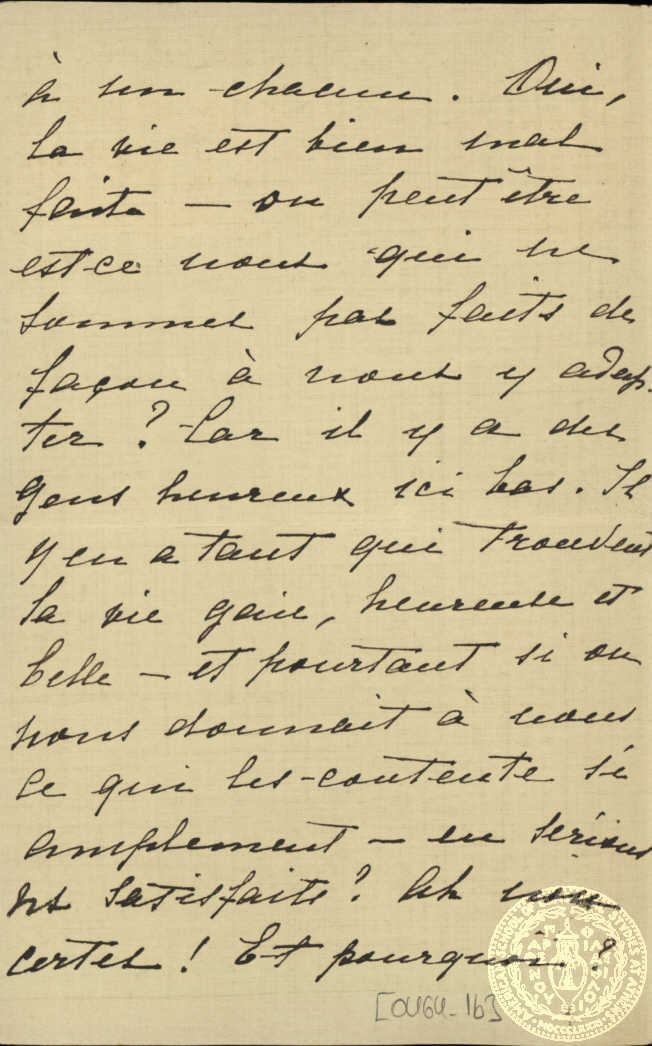 à un chacun. Oui,
la vie est bien mal
faite — ou peut être
est-ce nous qui ne
sommes pas faits de
façon à nous y adap-
ter? Car il y a des
gens heureux ici bas. Il
y en a tant qui trouvent
la vie gaie, heureuse et
belle — et pourtant si on
nous donnait à nous
ce qui les contente si
amplement — en serions
ns satisfaits? Ah non
certes! Et pourquoi?
[0464-1b]
AMERICAN SCHOOL OF CLASSICAL STUDIES AT ATHENS
MDCCCLXXXI